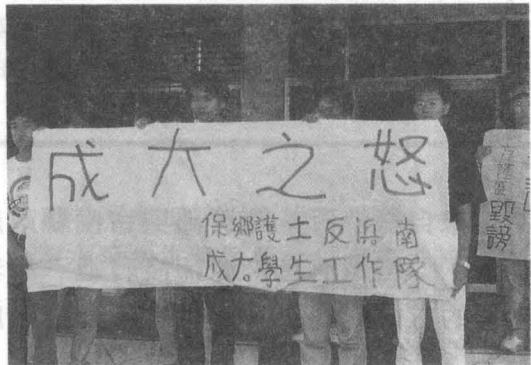 成大之怒
保鄉護土反浜南
成大學生工作隊
毀謗